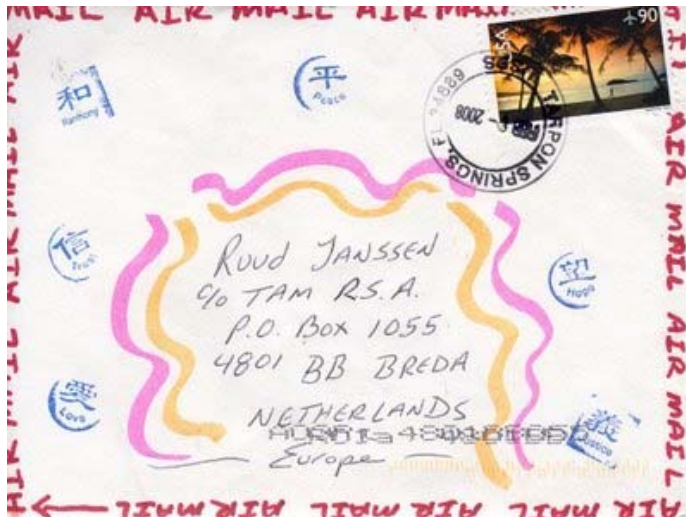 AIR MAIL AIR MAIL AIR MAIL
USA
90
TARPON SPRINGS, FL 34689
USPS
2008
和
Harmony
平
Peace
信
Trust
望
Hope
愛
Love
義
Justice
Ruud Janssen
c/o TAM R.S.A.
P.O. Box 1055
4801 BB BREDA
NETHERLANDS
Europe
AIR MAIL AIR MAIL AIR MAIL
AIR MAIL AIR MAIL AIR MAIL
AIR MAIL AIR MAIL AIR MAIL